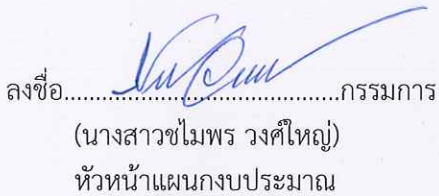 ลงชื่อ.............................................กรรมการ
(นางสาวชไมพร วงศ์ใหญ่)
หัวหน้าแผนกงบประมาณ